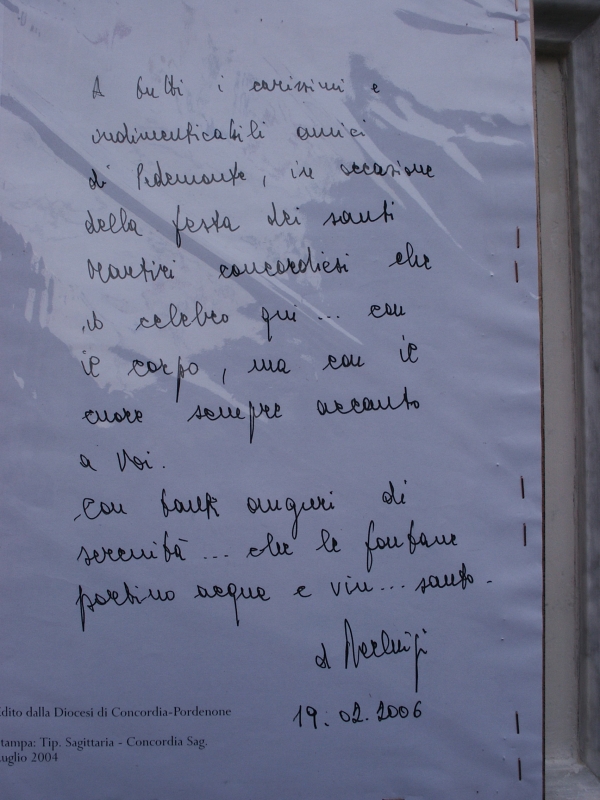 A tutti i carissimi e
indimenticabili amici
di Pedemonte, in occasione
della festa dei santi
Martiri concordiesi che
io celebro qui ... con
il corpo, ma con il
cuore sempre accanto
a voi.
Con tanti auguri di
serenità ... che le fontane
portino acqua e vin ... santo.
d Pierluigi
19.02.2006
dito dalla Diocesi di Concordia-Pordenone
tampa: Tip. Sagittaria - Concordia Sag.
uglio 2004